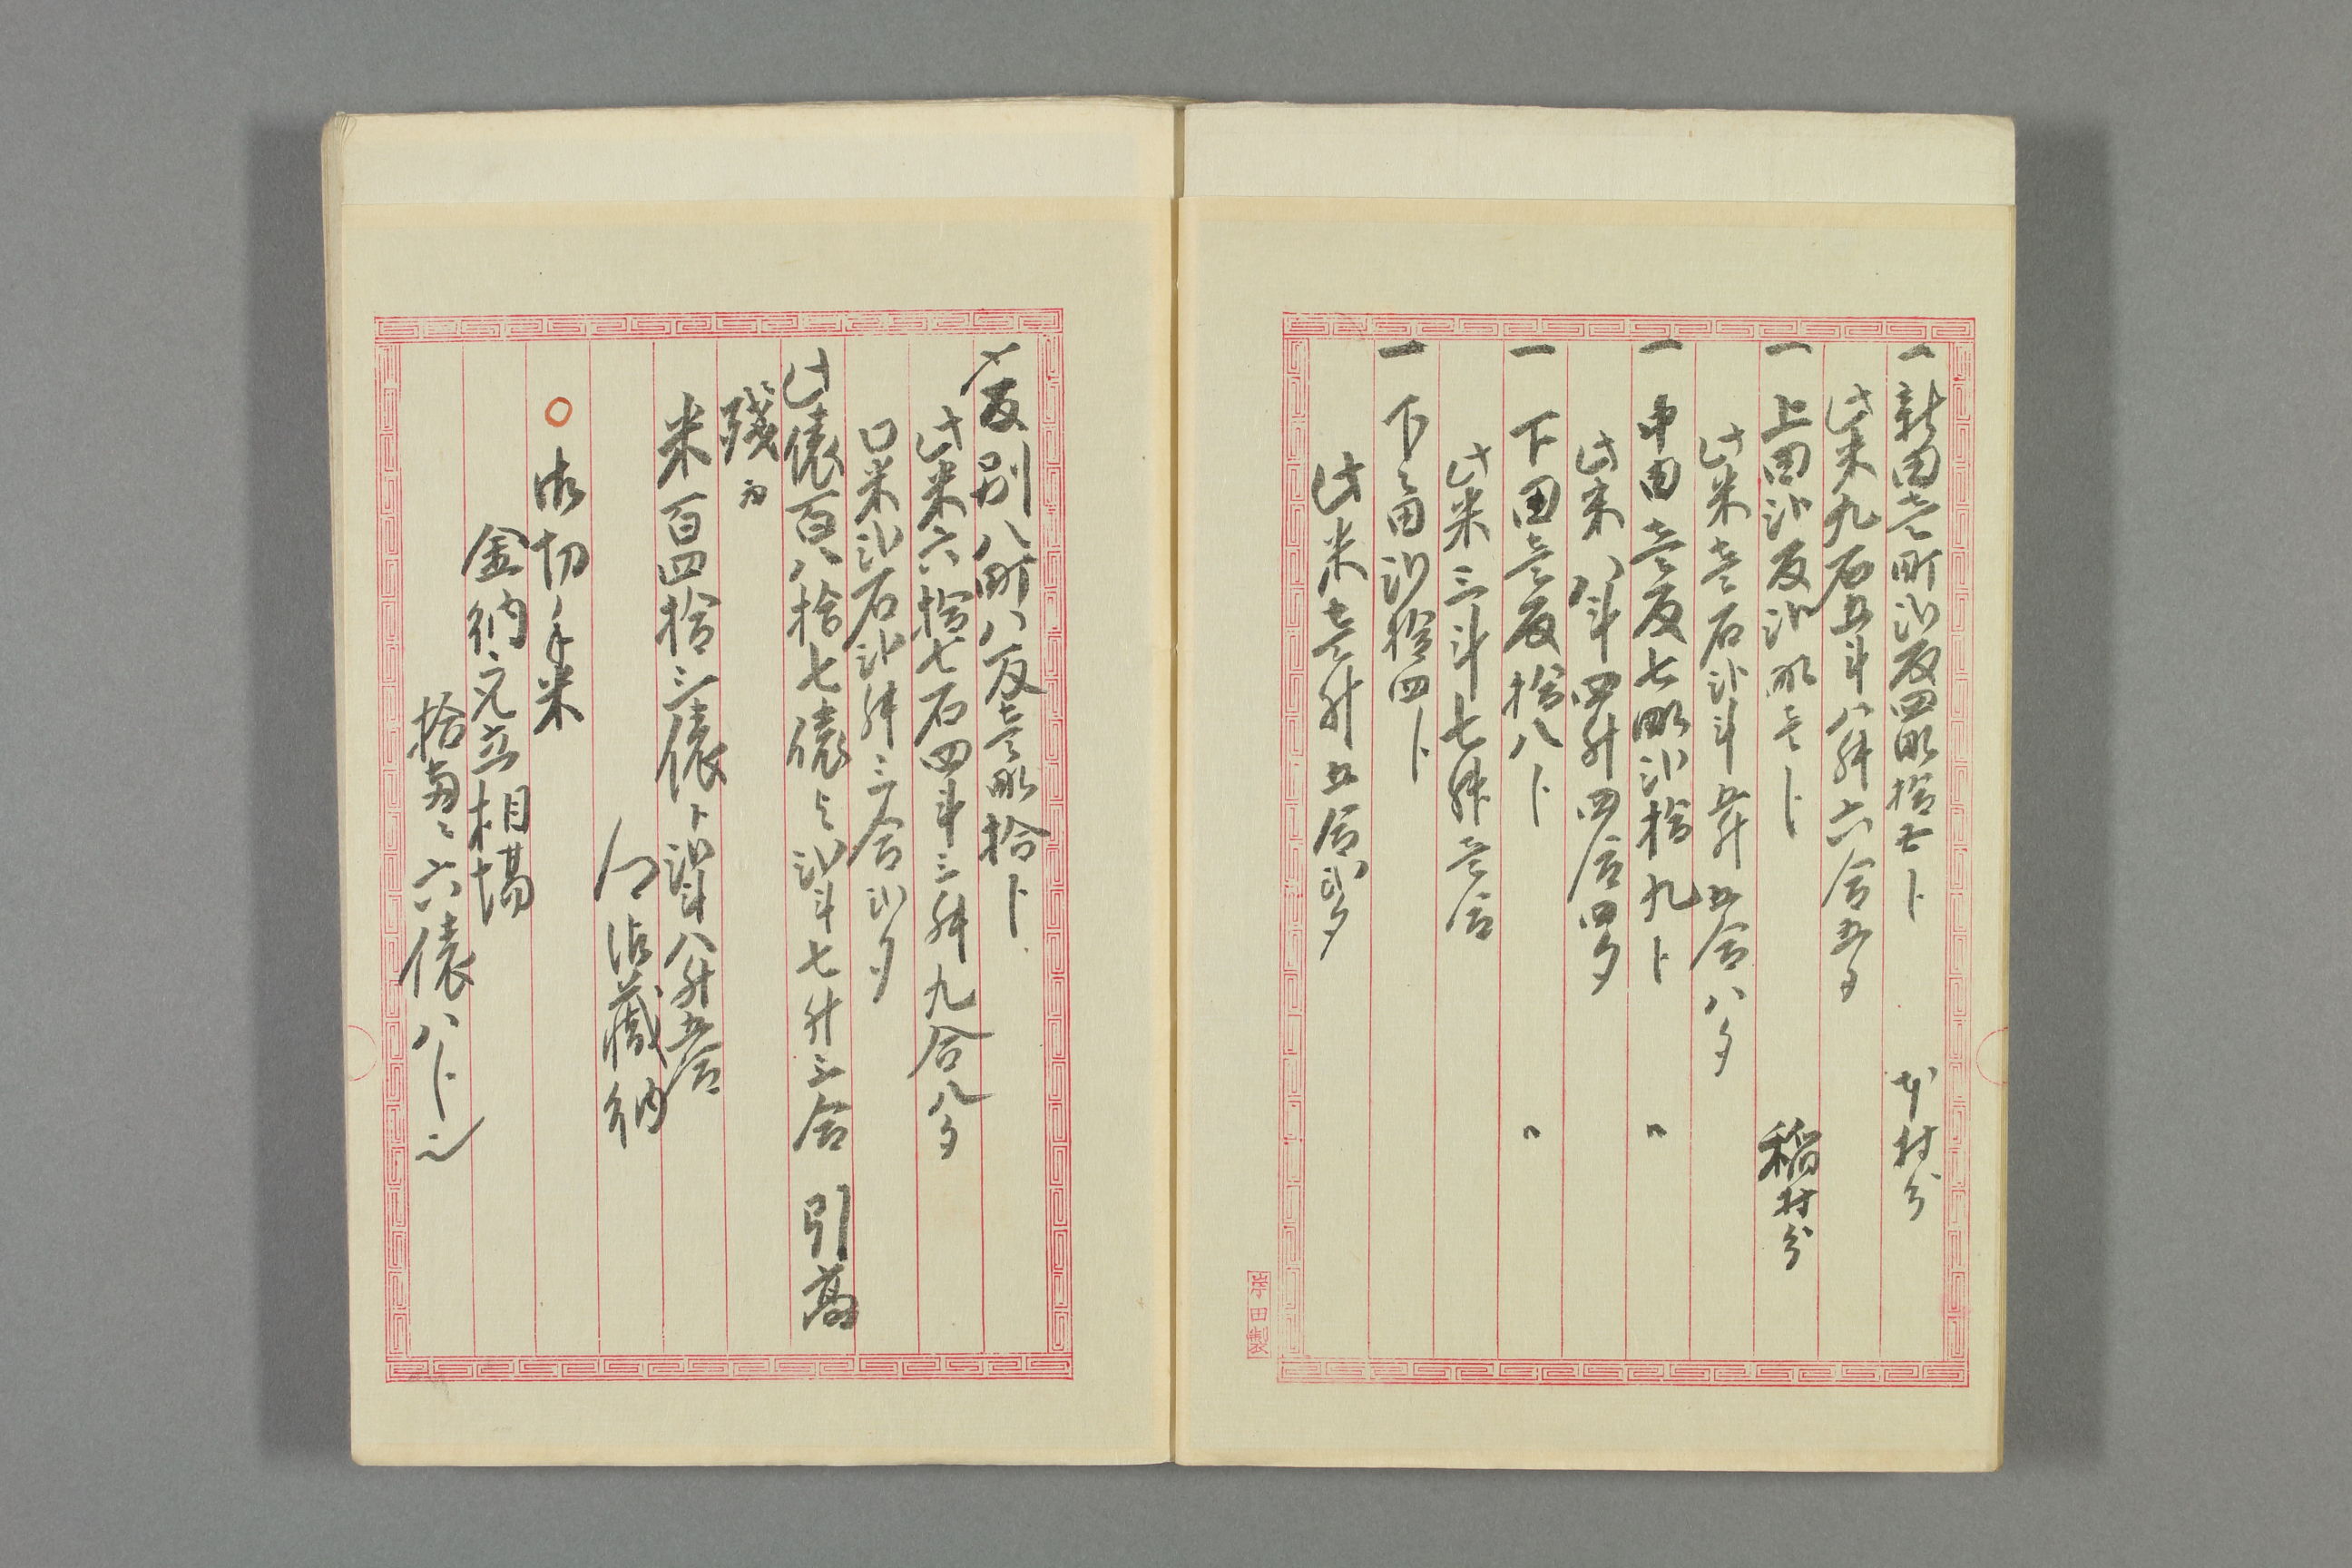 一新田壱町弐反四畝拾七卜　本村分
此米九石五斗八舛六合五夕
一上田弐反弐畝壱卜　稲村分
此米壱石弐斗五升五合八夕
一中田壱反七畝弐拾九卜　〃
此米八斗四升四合四夕
一下田壱反拾八卜　〃
此米三斗七舛壱合
一下々田弐拾四卜
此米壱升五合弐夕
反別八町八反壱畝拾卜
此米六拾七石四斗三舛九合八夕
口米弐石弐舛三合弐夕
此俵百八拾七俵ト弐斗七升三合　引高
残而
米百四拾三俵ト弐斗八升五合
蔵納
○御切手米
金納元立相場
拾両ニ六俵八卜
岸田製